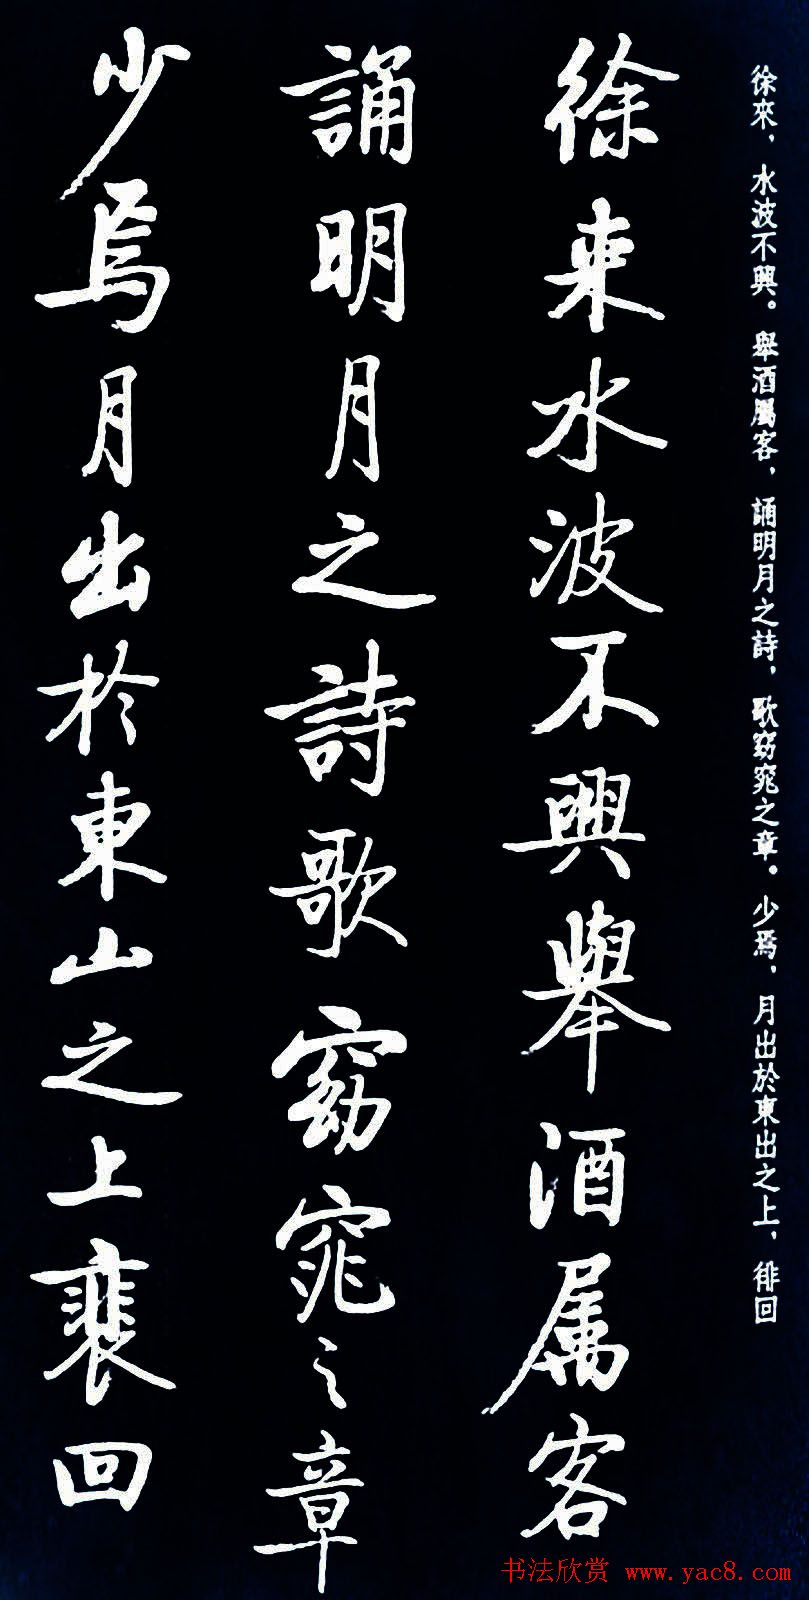 徐來，水波不興。舉酒屬客，誦明月之詩，歌窈窕之章。少焉，月出於東出之上，徘回
徐来水波不興舉酒属客
誦明月之詩歌窈窕之章
少焉月出於東山之上裴回
书法欣赏 www.yac8.com